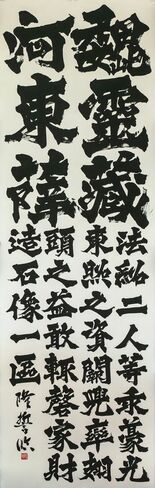 魏靈藏
河東薛
法紹二人等求豪光
東照之資闕兜率翅
頭之益敢輒磬家財
造石像一區